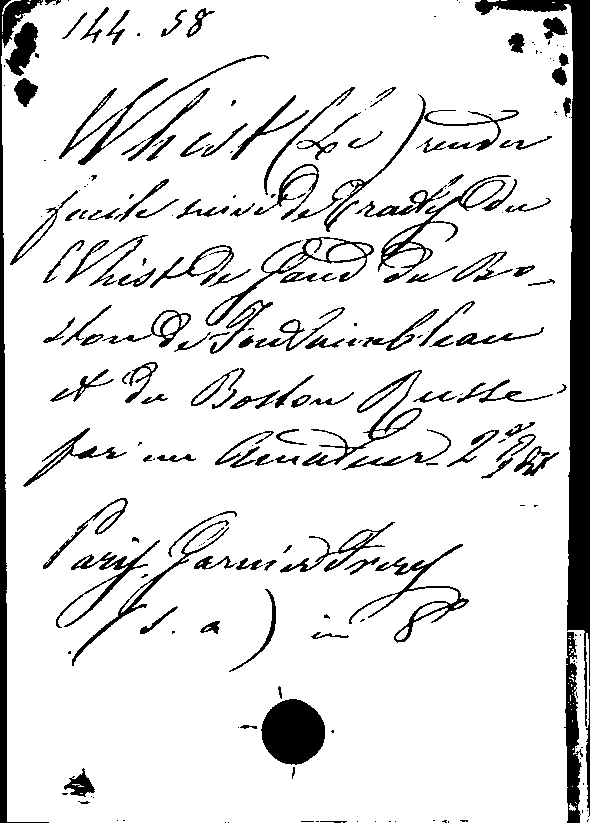 144. 58
Whist (Le) rendu
facile suivi de Traités du
Whist de Gand du Bo-
ston de Fontainebleau
et du Boston Russe
par un Amateur 2e Edit
Paris, Garnier Frères
(s. a) in 8º